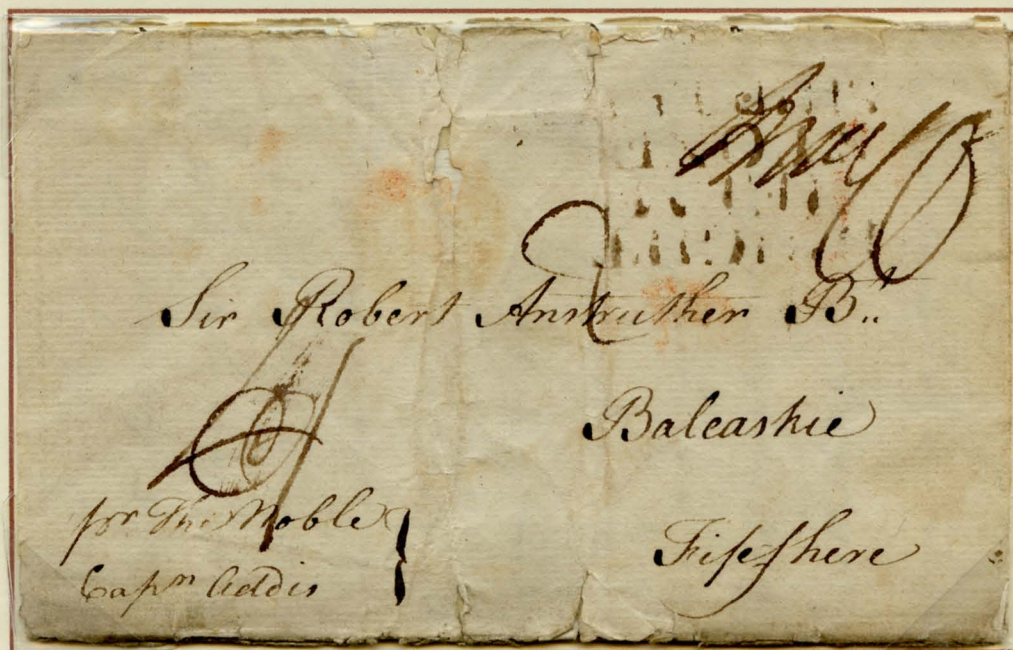 Sir Robert Anstruther Bt.
Balcaskie
Fifeshere
pr The Noble
Capn Addis